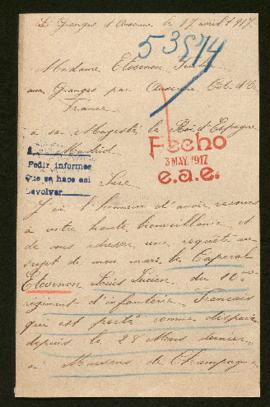 Les Granges d'Auxonne le 17 avril 1917.
53574
Madame Etevenon
aux Granges par Auxonne Côte d'Or
France
à sa Majesté le Roi d'Espagne
Madrid
Fecho
3 MAY. 1917
e.a.e.
Pedir informes
que se hace así
Devolver
Sire
J'ai l'honneur d'avoir recours
à votre haute bienveillance et
de vous adresser une requête au
sujet de mon mari, le Caporal
Etevenon Louis Lucien du
régiment d'infanterie Français
qui est porté comme disparu
depuis le 28 Mars dernier
à Maisons de Champagne